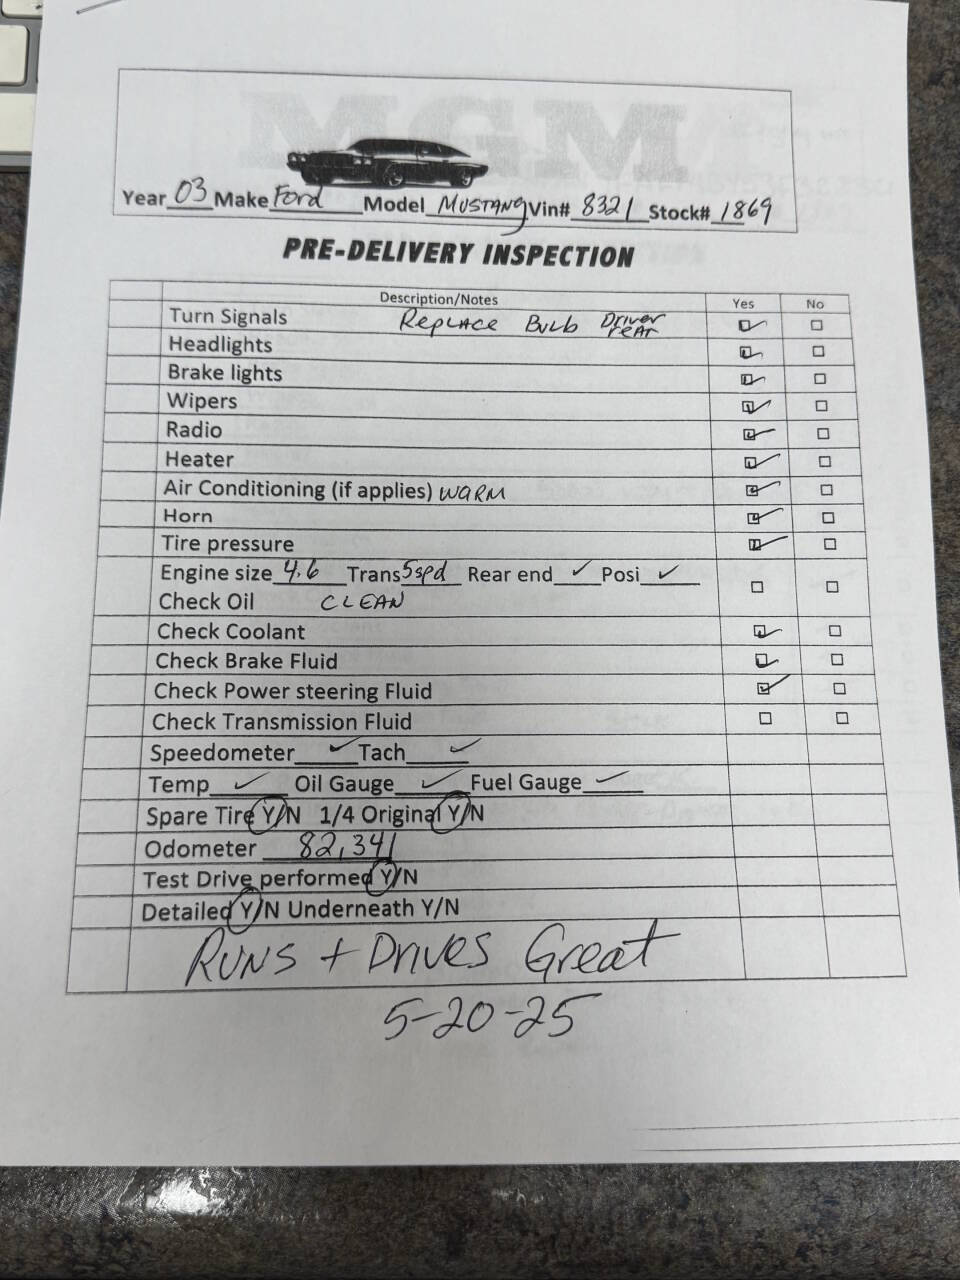 MGM
Year 03 Make Ford Model MUSTANG Vin# 8321 Stock# 1869
PRE-DELIVERY INSPECTION
Description/Notes Yes No
Turn Signals REPLACE Bulb Driver rear
Headlights
Brake lights
Wipers
Radio
Heater
Air Conditioning (if applies) WARM
Horn
Tire pressure
Engine size 4.6 Trans 5spd Rear end ✓ Posi ✓
Check Oil CLEAN
Check Coolant
Check Brake Fluid
Check Power steering Fluid
Check Transmission Fluid
Speedometer ✓ Tach ✓
Temp ✓ Oil Gauge ✓ Fuel Gauge ✓
Spare Tire Y/N 1/4 Original Y/N
Odometer 82,341
Test Drive performed Y/N
Detailed Y/N Underneath Y/N
RUNS + DRIVES Great
5-20-25